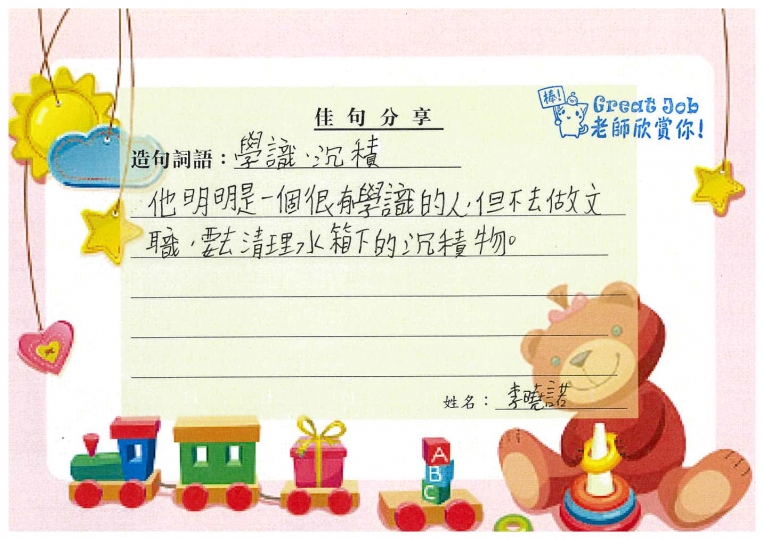 佳句分享
棒!
Great Job
老師欣賞你!
造句詞語：學識、沉積
他明明是一個很有學識的人，但不去做文
職，要去清理水箱下的沉積物。
姓名：李曉諾
A
B
C